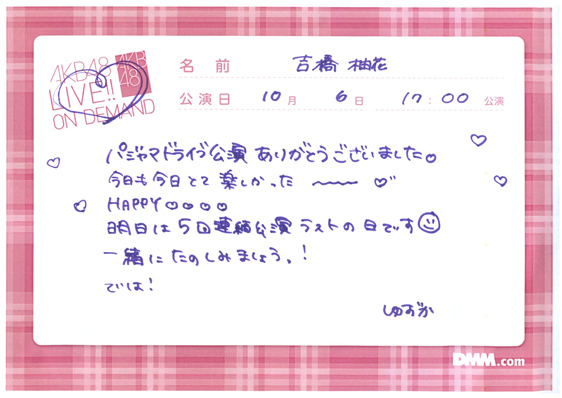 AKB48
LIVE!!
ON DEMAND
AKB
48
名前 吉橋 柚花
公演日 10月 6日 17:00 公演
パジャマドライブ公演 ありがとうございました
今日も今日とて 楽しかった 〜〜
HAPPY
明日は 5回連続公演 ラストの日です
一緒に たのしみましょう。!
では!
ゆずか
DMM.com